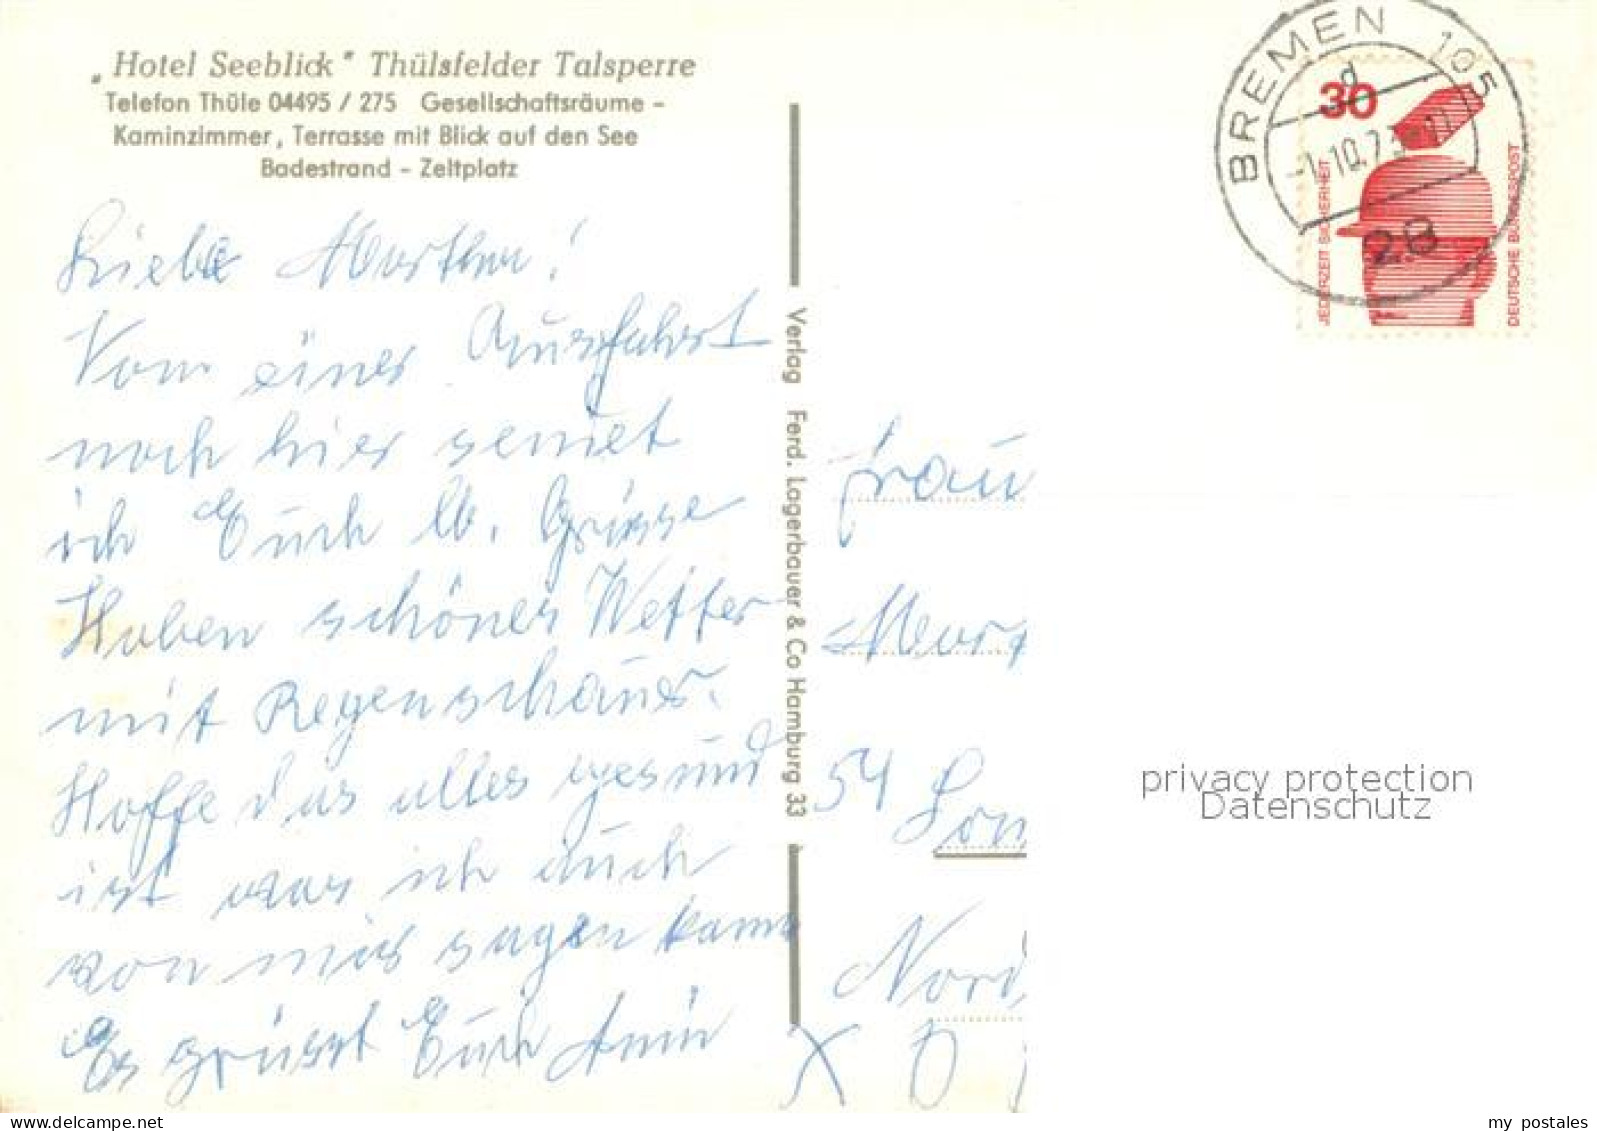 „Hotel Seeblick" Thülsfelder Talsperre
Telefon Thüle 04495 / 275 Gesellschaftsräume -
Kaminzimmer, Terrasse mit Blick auf den See
Badestrand - Zeltplatz
Liebe Martha!
Von einer Ausfahrt
noch hier sendet
ich Euch lb. Grüsse
Haben schönes Wetter
mit Regenschauer.
Hoffe das alles gesund
ist was ich auch
von mir sagen kann
Es grüsst Euch
Verlag Ferd. Lagerbauer & Co Hamburg 33
BREMEN 105
d
-1.10.7
28
30
JEDERZEIT SICHERHEIT
DEUTSCHE BUNDESPOST
Frau
54
Nord
privacy protection
Datenschutz
my postales